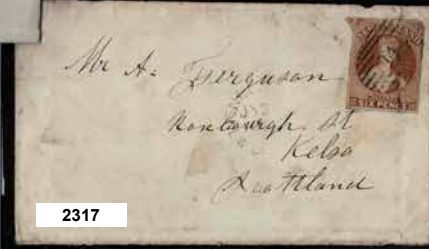 Mr A: Ferguson
Roxbourgh St
Kelso
Scottland
SIX PENCE
2317